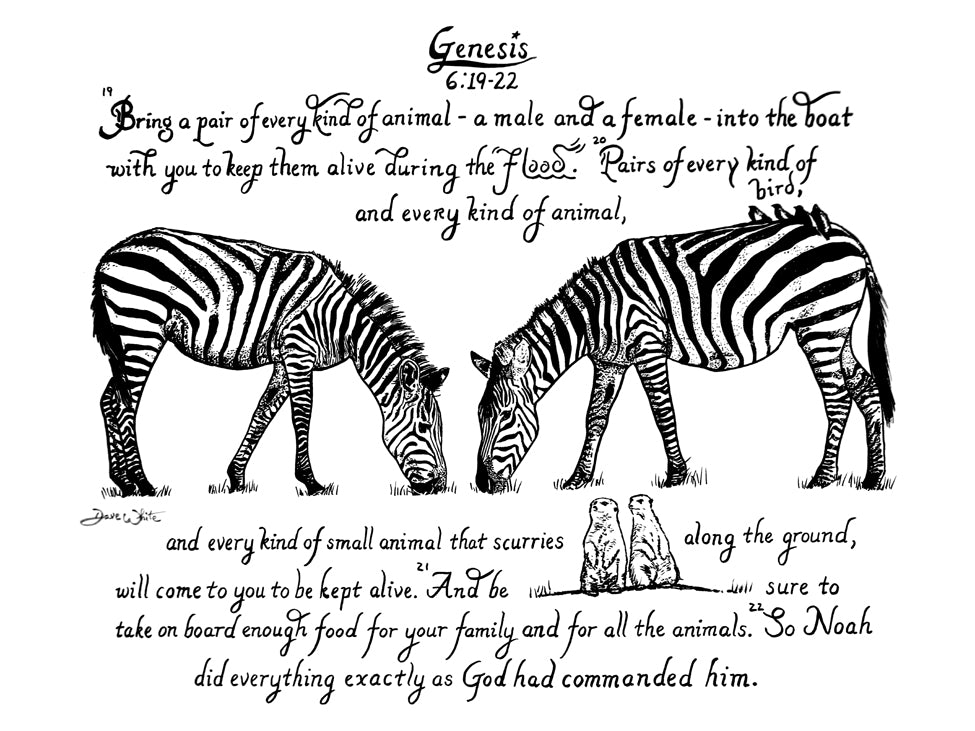 Genesis
6:19-22
19 Bring a pair of every kind of animal - a male and a female - into the boat
with you to keep them alive during the flood. 20 Pairs of every kind of
bird,
and every kind of animal,
Dave White
and every kind of small animal that scurries along the ground,
will come to you to be kept alive. 21 And be sure to
take on board enough food for your family and for all the animals. 22 So Noah
did everything exactly as God had commanded him.